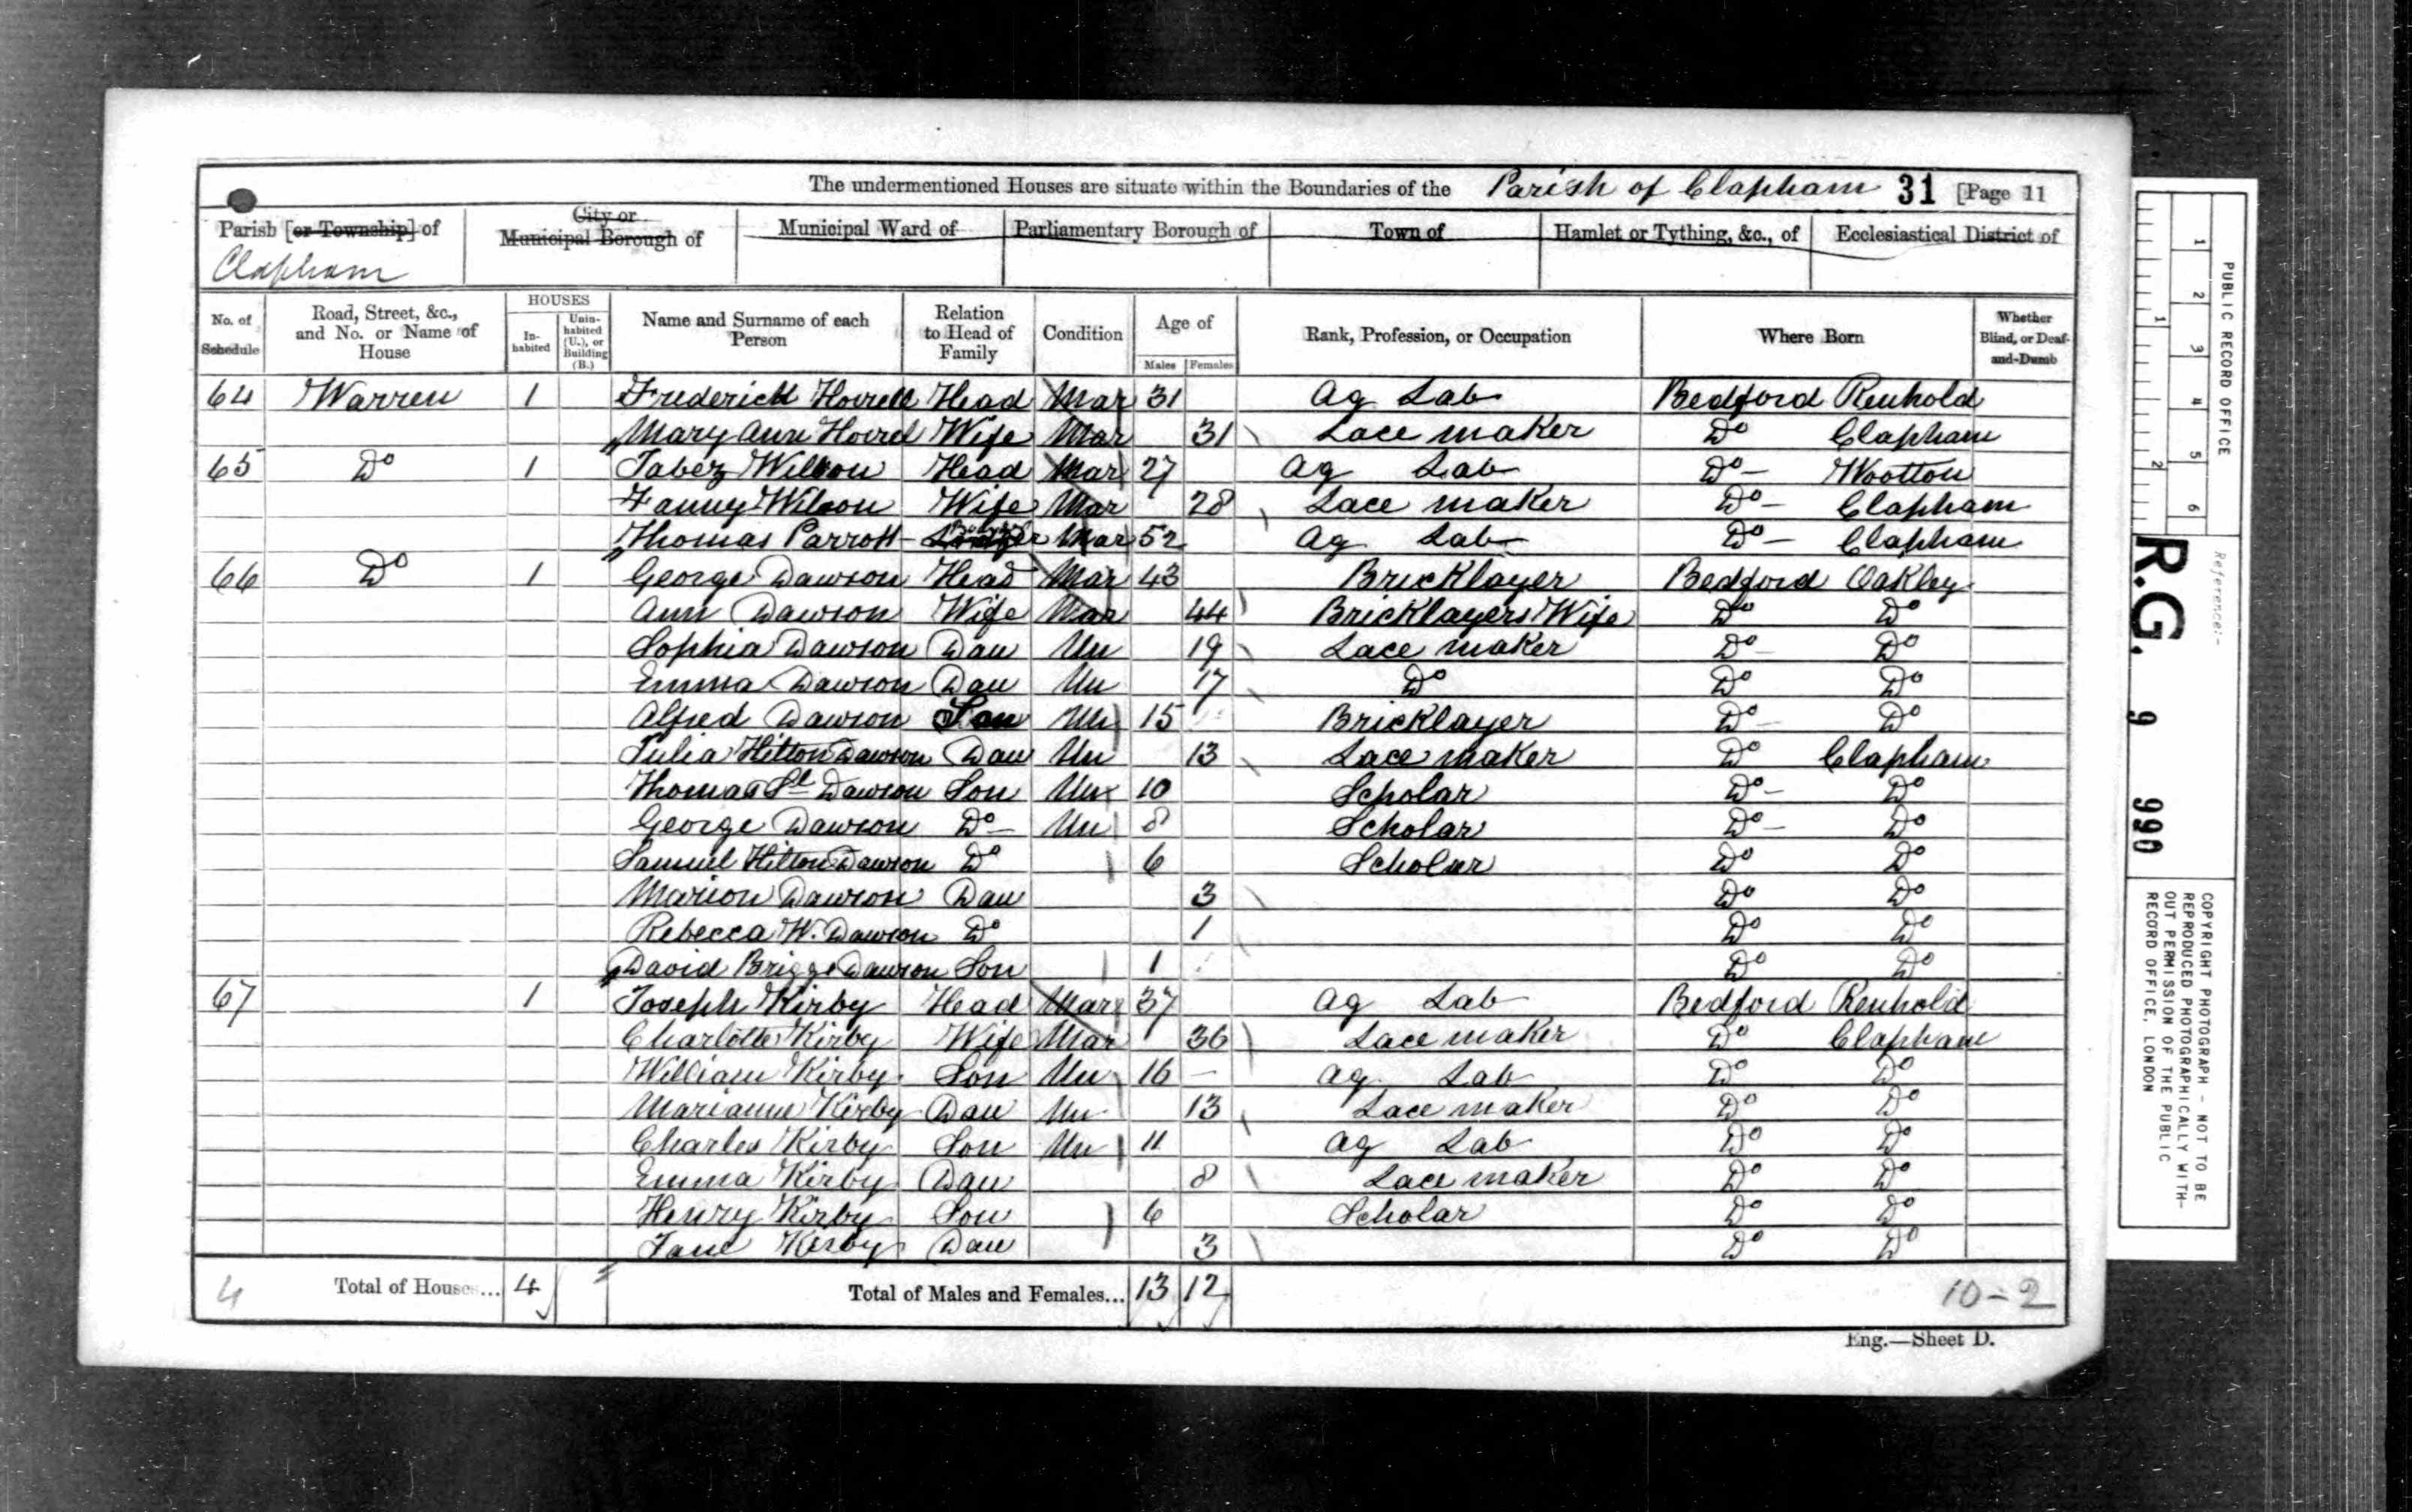 The undermentioned Houses are situate within the Boundaries of the Parish of Clapham 31 [Page 11
Parish [or Township] of City or Municipal Borough of Municipal Ward of Parliamentary Borough of Town of Hamlet or Tything, &c., of Ecclesiastical District of
Clapham
No. of Schedule Road, Street, &c., and No. or Name of House HOUSES Inhabited Uninhabited (U.), or Building (B.) Name and Surname of each Person Relation to Head of Family Condition Age of Males Females Rank, Profession, or Occupation Where Born Whether Blind, or Deaf-and-Dumb
64 Warren 1 Frederick Head Mar 31 Ag Lab Bedford Renhold
Mary Ann Wife Mar 31 Lace maker Do Clapham
65 Do 1 Jabez Wilson Head Mar 27 Ag Lab Do Wootton
Fanny Wilson Wife Mar 28 Lace maker Do Clapham
Thomas Parrott Mar 52 Ag Lab Do Clapham
66 Do 1 George Dawson Head Mar 43 Bricklayer Bedford Oakley
Ann Dawson Wife Mar 44 Bricklayers Wife Do Do
Sophia Dawson Dau Un 19 Lace maker Do Do
Emma Dawson Dau Un 17 Do Do Do
Alfred Dawson Son Un 15 Bricklayer Do Do
Julia Hilton Dawson Dau Un 13 Lace maker Do Clapham
Thomas Dawson Son Un 10 Scholar Do Do
George Dawson Do Un 8 Scholar Do Do
Samuel Hilton Dawson Do 6 Scholar Do Do
Marion Dawson Dau 3 Do Do
Rebecca W. Dawson Do 1 Do Do
David Briggs Dawson Son 1 Do Do
67 1 Joseph Kirby Head Mar 37 Ag Lab Bedford Renhold
Charlotte Kirby Wife Mar 36 Lace maker Do Clapham
William Kirby Son Un 16 Ag Lab Do Do
Mariann Kirby Dau Un 13 Lace maker Do Do
Charles Kirby Son Un 11 Ag Lab Do Do
Emma Kirby Dau 8 Lace maker Do Do
Henry Kirby Son 6 Scholar Do Do
Jane Kirby Dau 3 Do Do
4 Total of Houses... 4 Total of Males and Females... 13 12 10-2
Eng.—Sheet D.
PUBLIC RECORD OFFICE
1 2 3 4 5 6
1 2
Reference:-
R.G. 9 990
COPYRIGHT PHOTOGRAPH - NOT TO BE
REPRODUCED PHOTOGRAPHICALLY WITH-
OUT PERMISSION OF THE PUBLIC
RECORD OFFICE, LONDON